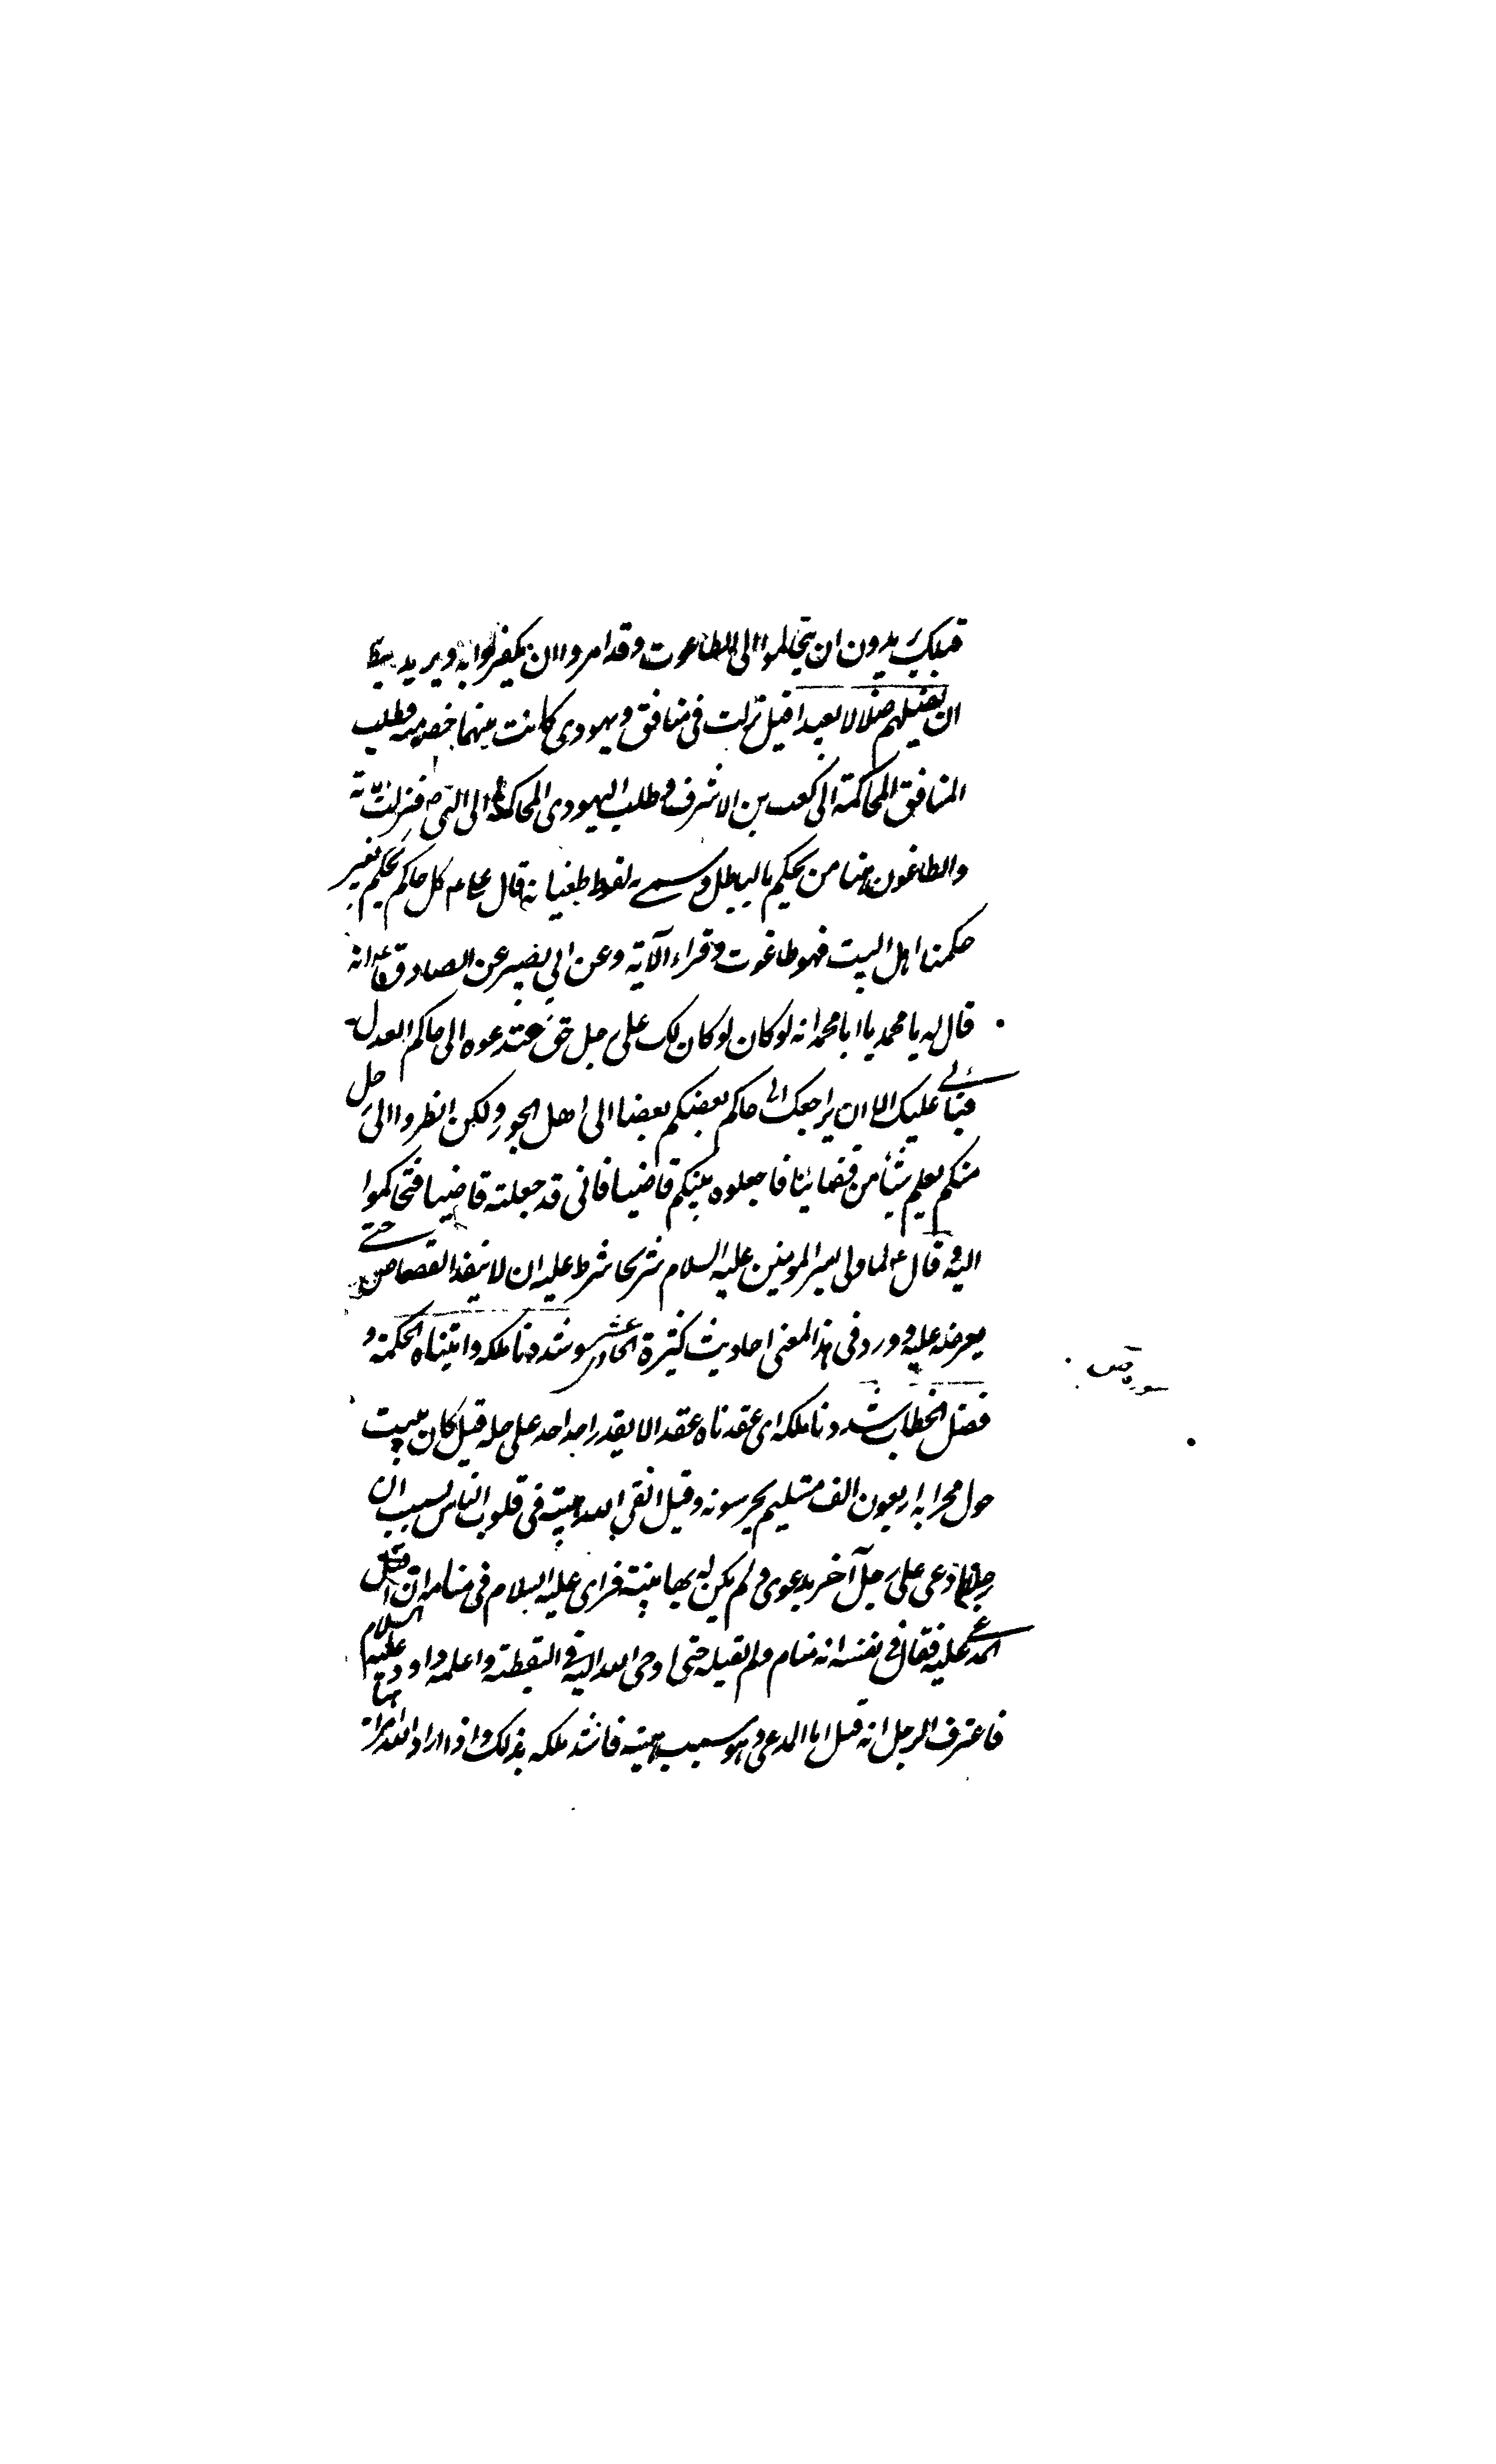 قبلك يريدون ان يتحاكموا الى الطاغوت وقد امروا ان يكفروا به ويريد الشيطان
ان يضلهم ضلالا بعيدا قيل نزلت في منافق ويهودى كانت بينهما خصومة فطلب
المنافق المحاكمة الى كعب بن الاشرف وطلب اليهودى المحاكمة الى النبي ص فنزلت
والطاغون هنا من يحكم بالباطل وسمى به لفرط طغيانه قال ع كل حاكم يحكم بغير
حكمنا اهل البيت فهو طاغوت وقراء الآية وعن ابي بصير عن الصادق ع انه
قال له يا محمد يا ابا محمد انه لو كان لو كان لك على رجل حق فتدعوه الى حاكم العدل
فيأبى عليك الا ان يراجعك الى حاكم بعضكم بعضا الى اهل الجور ولكن انظروا الى رجل
منكم يعلم شيأ من قضائنا فاجعلوه بينكم قاضيا فانى قد جعلته قاضيا فتحاكموا
اليه وقال ع لما ولى امير المومنين عليه السلام شريحا شرط عليه ان لا ينفذ القصاص حتى
يعرضه عليه وورد في هذا المعنى احاديث كثيرة الحادى عشر وشددنا ملكه واتيناه الحكمة و
فصل الخطاب شددنا ملكه اى عقدناه عقدا لا يقدر احد على حله قيل كان يبيت
حول محرابه اربعون الف مستليم يحرسونه وقيل القى الله هيبته فى قلوب الناس بسبب ان
رجلا ادعى على رجل آخر بدعوى ولم يكن له بها بينة فراى عليه السلام في منامه ان اقتل
المدعى عليه فقال في نفسه انه منام ولم يقبله حتى اوحى الله اليه في اليقظة واعلمه داود عليه السلام
فاعترف الرجل انه قتل ابا المدعى وهو سبب هيبته فاشتد ملكه بذلك واذا اراد الله
سورة ص